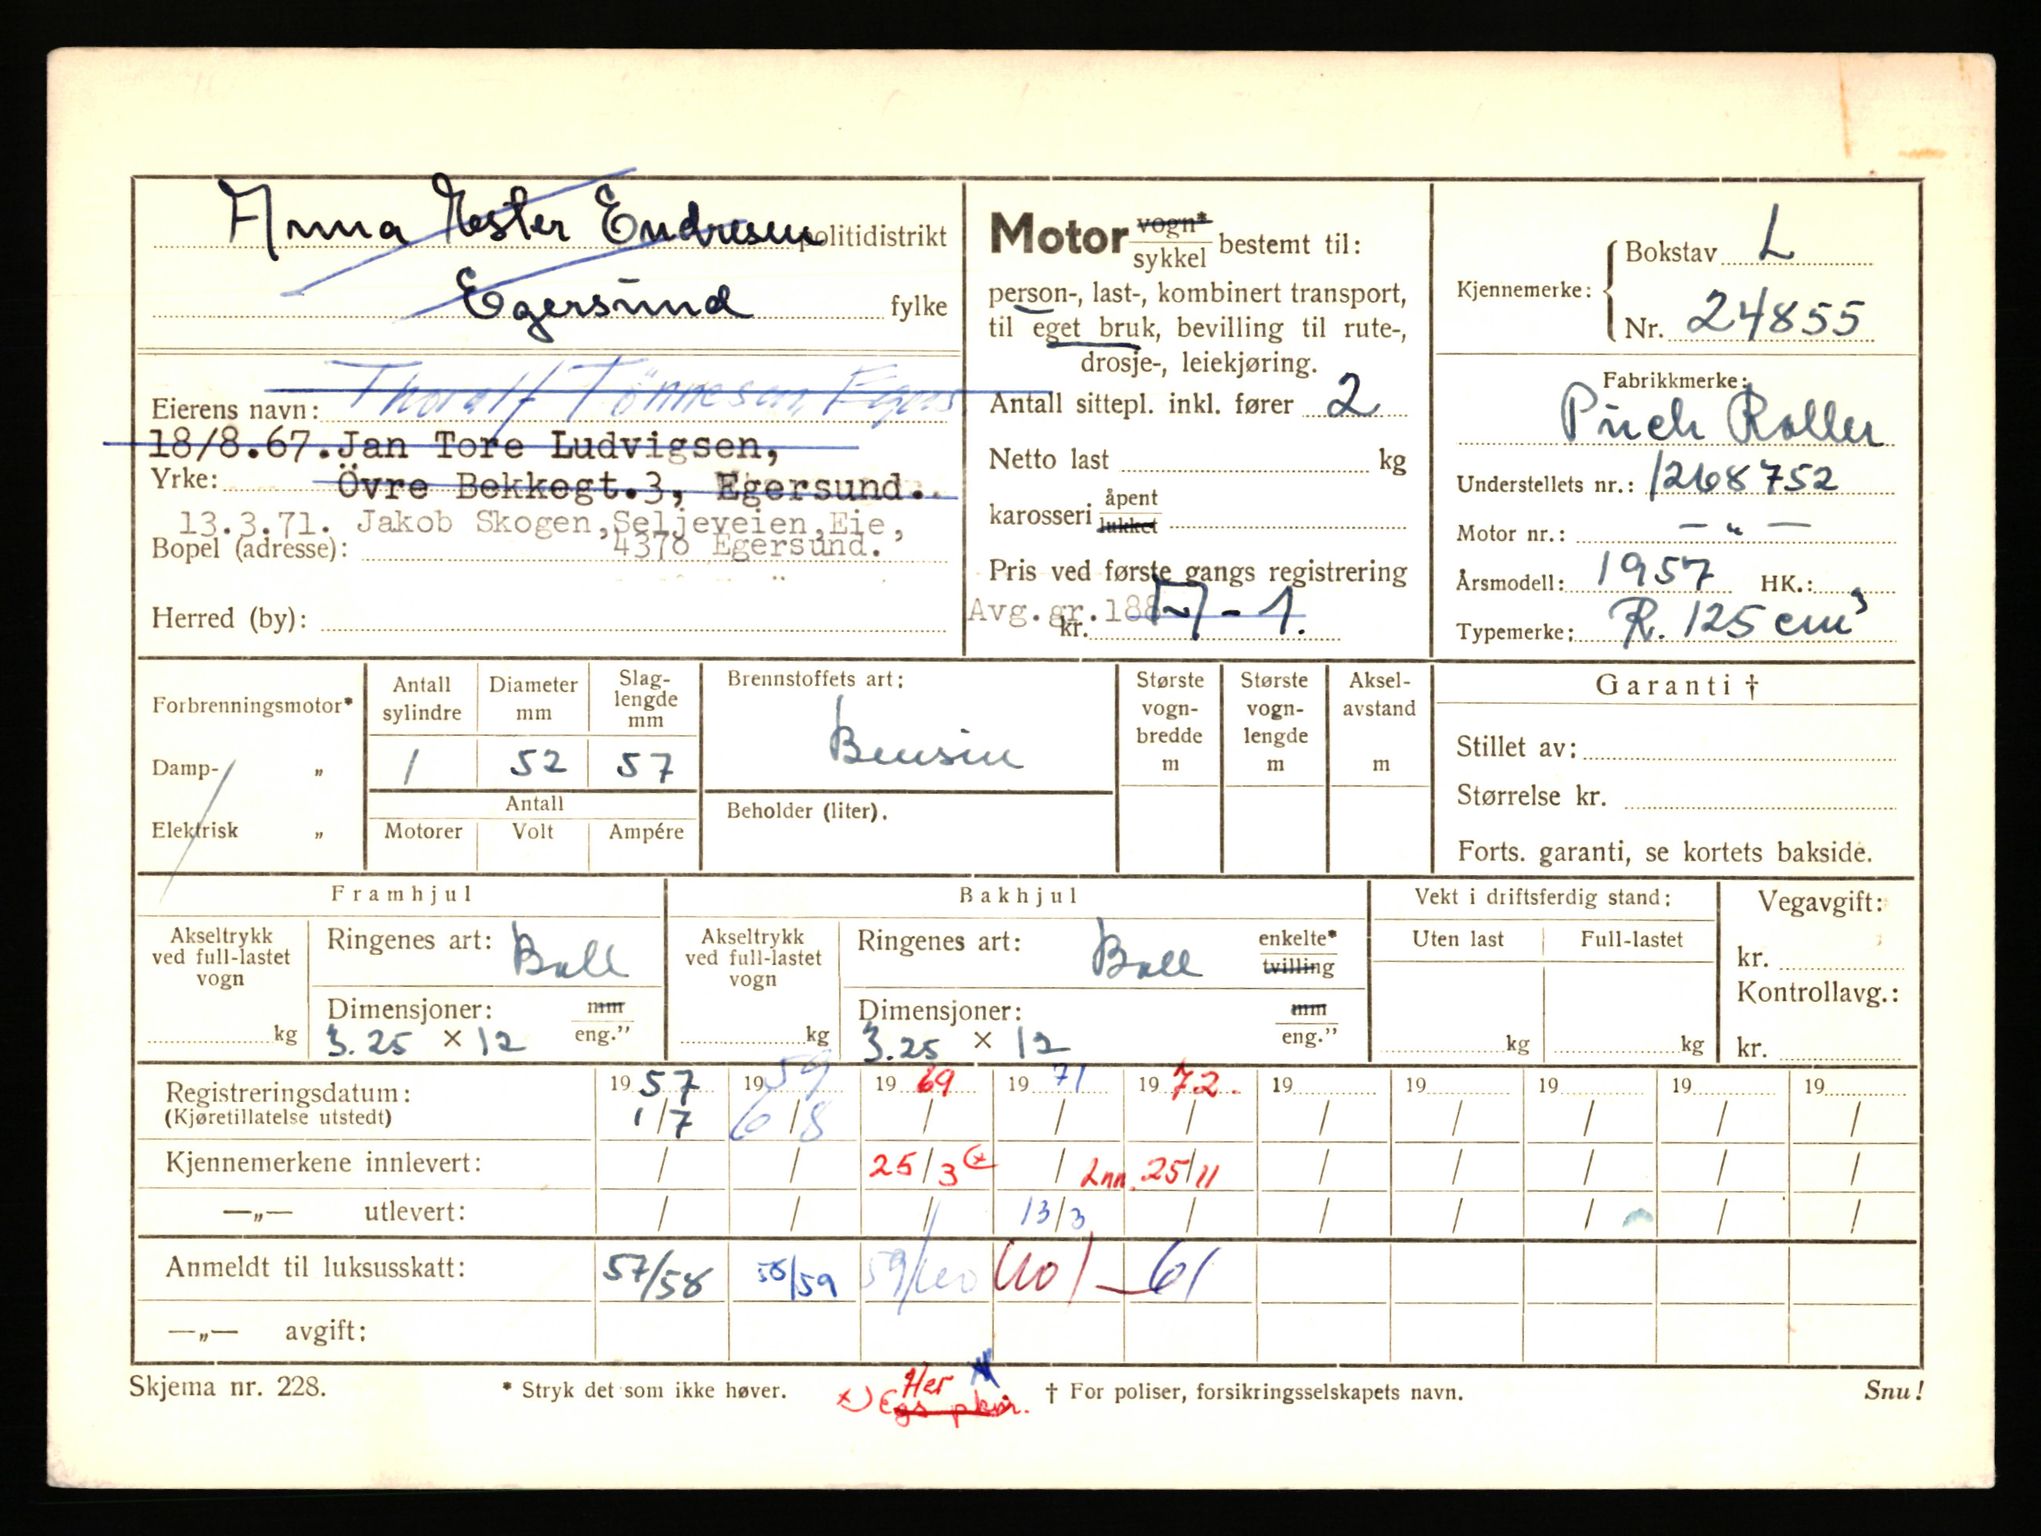 Anna Ester Endresen politidistrikt
Egersund fylke
Eierens navn: Thoralf Tönnesen, Egers
18/8.67. Jan Tore Ludvigsen,
Yrke: Övre Bekkegt.3, Egersund.
13.3.71. Jakob Skogen, Seljeveien, Eie,
Bopel (adresse): 4370 Egersund.
Herred (by):
Motor vogn* sykkel bestemt til:
person-, last-, kombinert transport,
til eget bruk, bevilling til rute-,
drosje-, leiekjøring.
Antall sittepl. inkl. fører 2
Netto last kg
karosseri åpent lukket
Pris ved første gangs registrering
Avg.gr.188
kr.
Kjennemerke: Bokstav L
Nr. 24855
Fabrikkmerke:
Puch Roller
Understellets nr.: 1268752
Motor nr.: — „ —
Årsmodell: 1957 HK.:
Typemerke: R. 125 cm³
Forbrenningsmotor*
Damp- „
Elektrisk „
Antall sylindre Diameter mm Slag-lengde mm
1 52 57
Antall
Motorer Volt Ampére
Brennstoffets art:
Bensin
Beholder (liter).
Største vogn-bredde m
Største vogn-lengde m
Aksel-avstand m
Garanti †
Stillet av:
Størrelse kr.
Forts. garanti, se kortets bakside.
Framhjul
Akseltrykk ved full-lastet vogn kg
Ringenes art: Ball
Dimensjoner: mm eng.”
3.25 × 12
Bakhjul
Akseltrykk ved full-lastet vogn kg
Ringenes art: Ball enkelte* tvilling
Dimensjoner: mm eng.”
3.25 × 12
Vekt i driftsferdig stand:
Uten last Full-lastet
kg kg
Vegavgift:
kr.
Kontrollavg.:
kr.
Registreringsdatum: 1957 1959 1969 1971 1972. 19 19 19 19 19
(Kjøretillatelse utstedt) 1/7 6/8 / / / / / / / /
Kjennemerkene innlevert: / / 25/3 (x / Inn. 25/11 / / / / /
—„— utlevert: / / / 13/3 / / / / / /
Anmeldt til luksusskatt: 57/58 58/59 59/60 60/–61
—„— avgift:
Skjema nr. 228.
* Stryk det som ikke høver.
Her
x) Egs pkm.
† For poliser, forsikringsselskapets navn.
Snu!